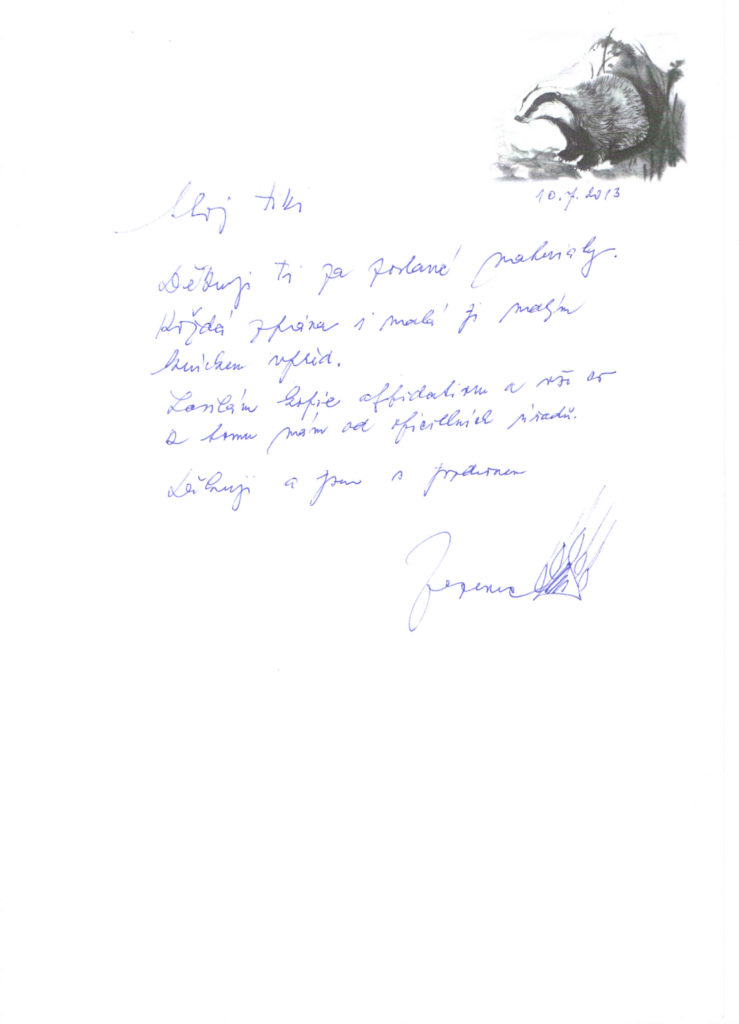 10.7.2013
Ahoj Tiki
Děkuji ti za poslané materialy.
Každá zpráva i malá je malým
krůčkem vpřed.
Zasílám kopie affidatism a vše co
k tomu mám od oficiellních úřadů.
Děkuji a jsem s pozdravem